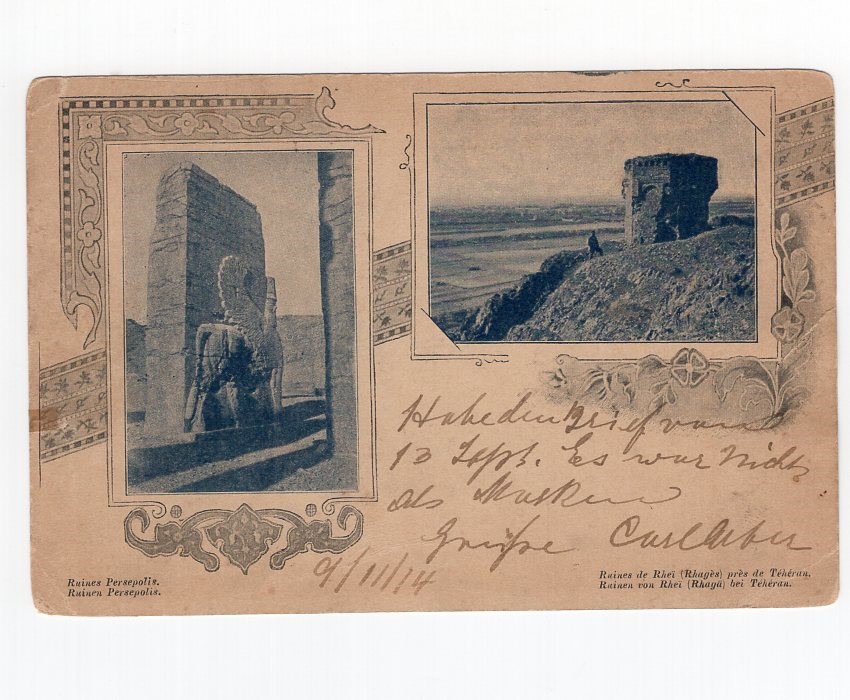 Habe den Brief vom
13 Sept. Es war nichts
als Masken
Grüße Carl
9/11/14
Ruines Persepolis.
Ruinen Persepolis.
Ruines de Rheï (Rhagès) près de Téhéran.
Ruinen von Rheï (Rhagä) bei Téhéran.